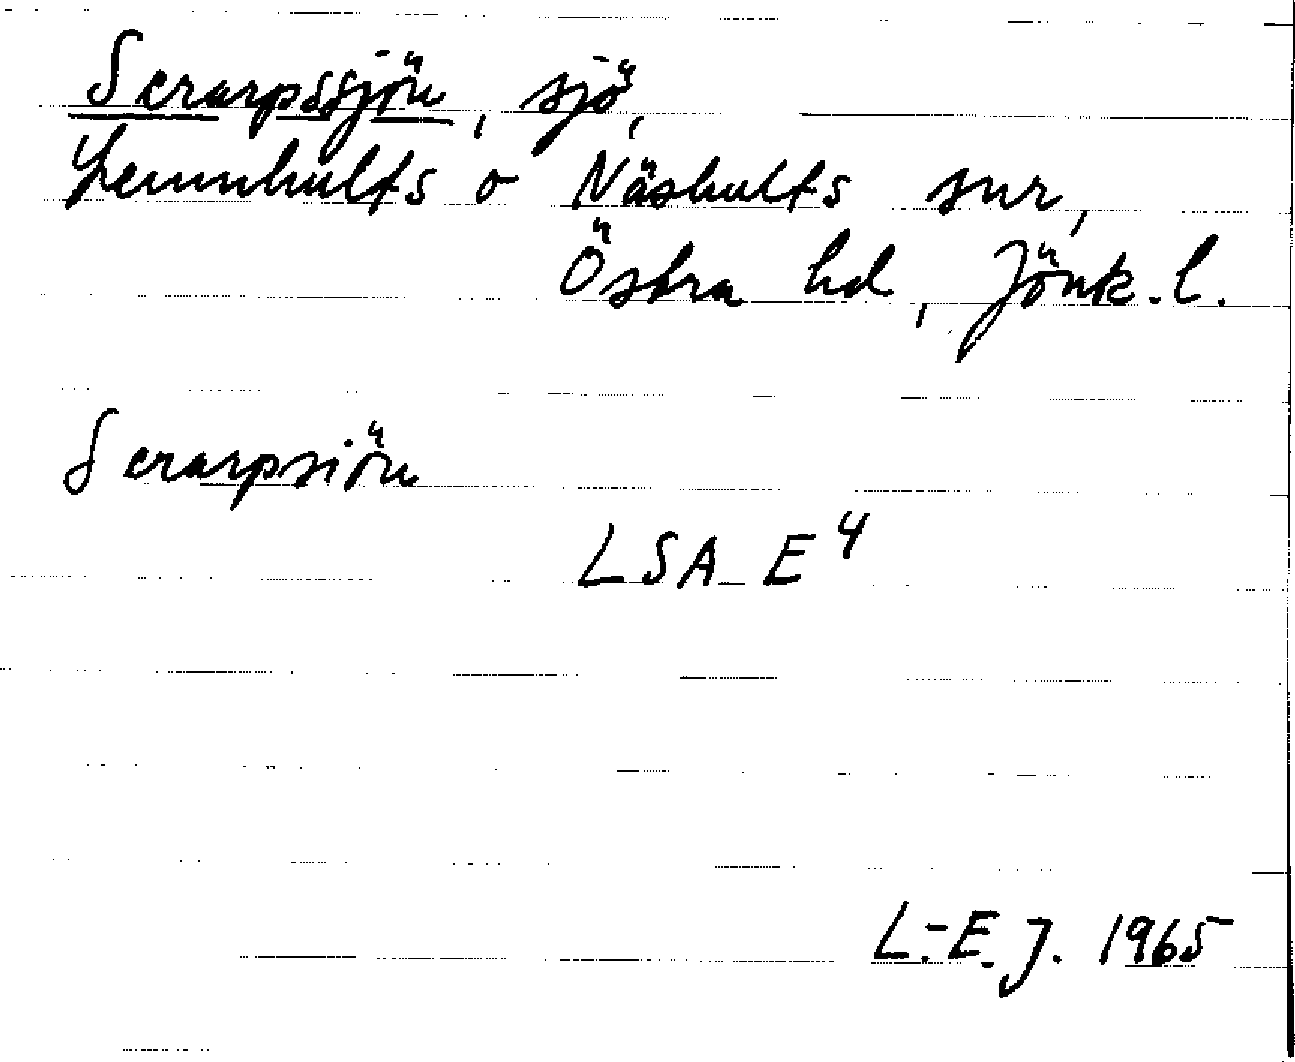 Serarpssjön, sjö,
Lemnhults o Näshults snr,
Östra hd, Jönk. l.
Serarpsiön
LSA E4
L.-E. J. 1965